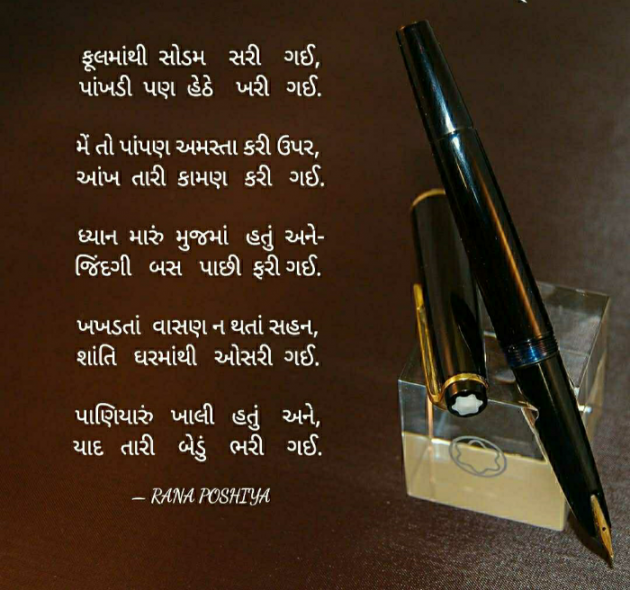 ફૂલમાંથી સોડમ સરી ગઈ,
પાંખડી પણ હેઠે ખરી ગઈ.
મેં તો પાંપણ અમસ્તા કરી ઉપર,
આંખ તારી કામણ કરી ગઈ.
ધ્યાન મારું મુજમાં હતું અને-
જિંદગી બસ પાછી ફરી ગઈ.
ખખડતાં વાસણ ન થતાં સહન,
શાંતિ ઘરમાંથી ઓસરી ગઈ.
પાણિયારું ખાલી હતું અને,
યાદ તારી બેડું ભરી ગઈ.
– RANA POSHIYA